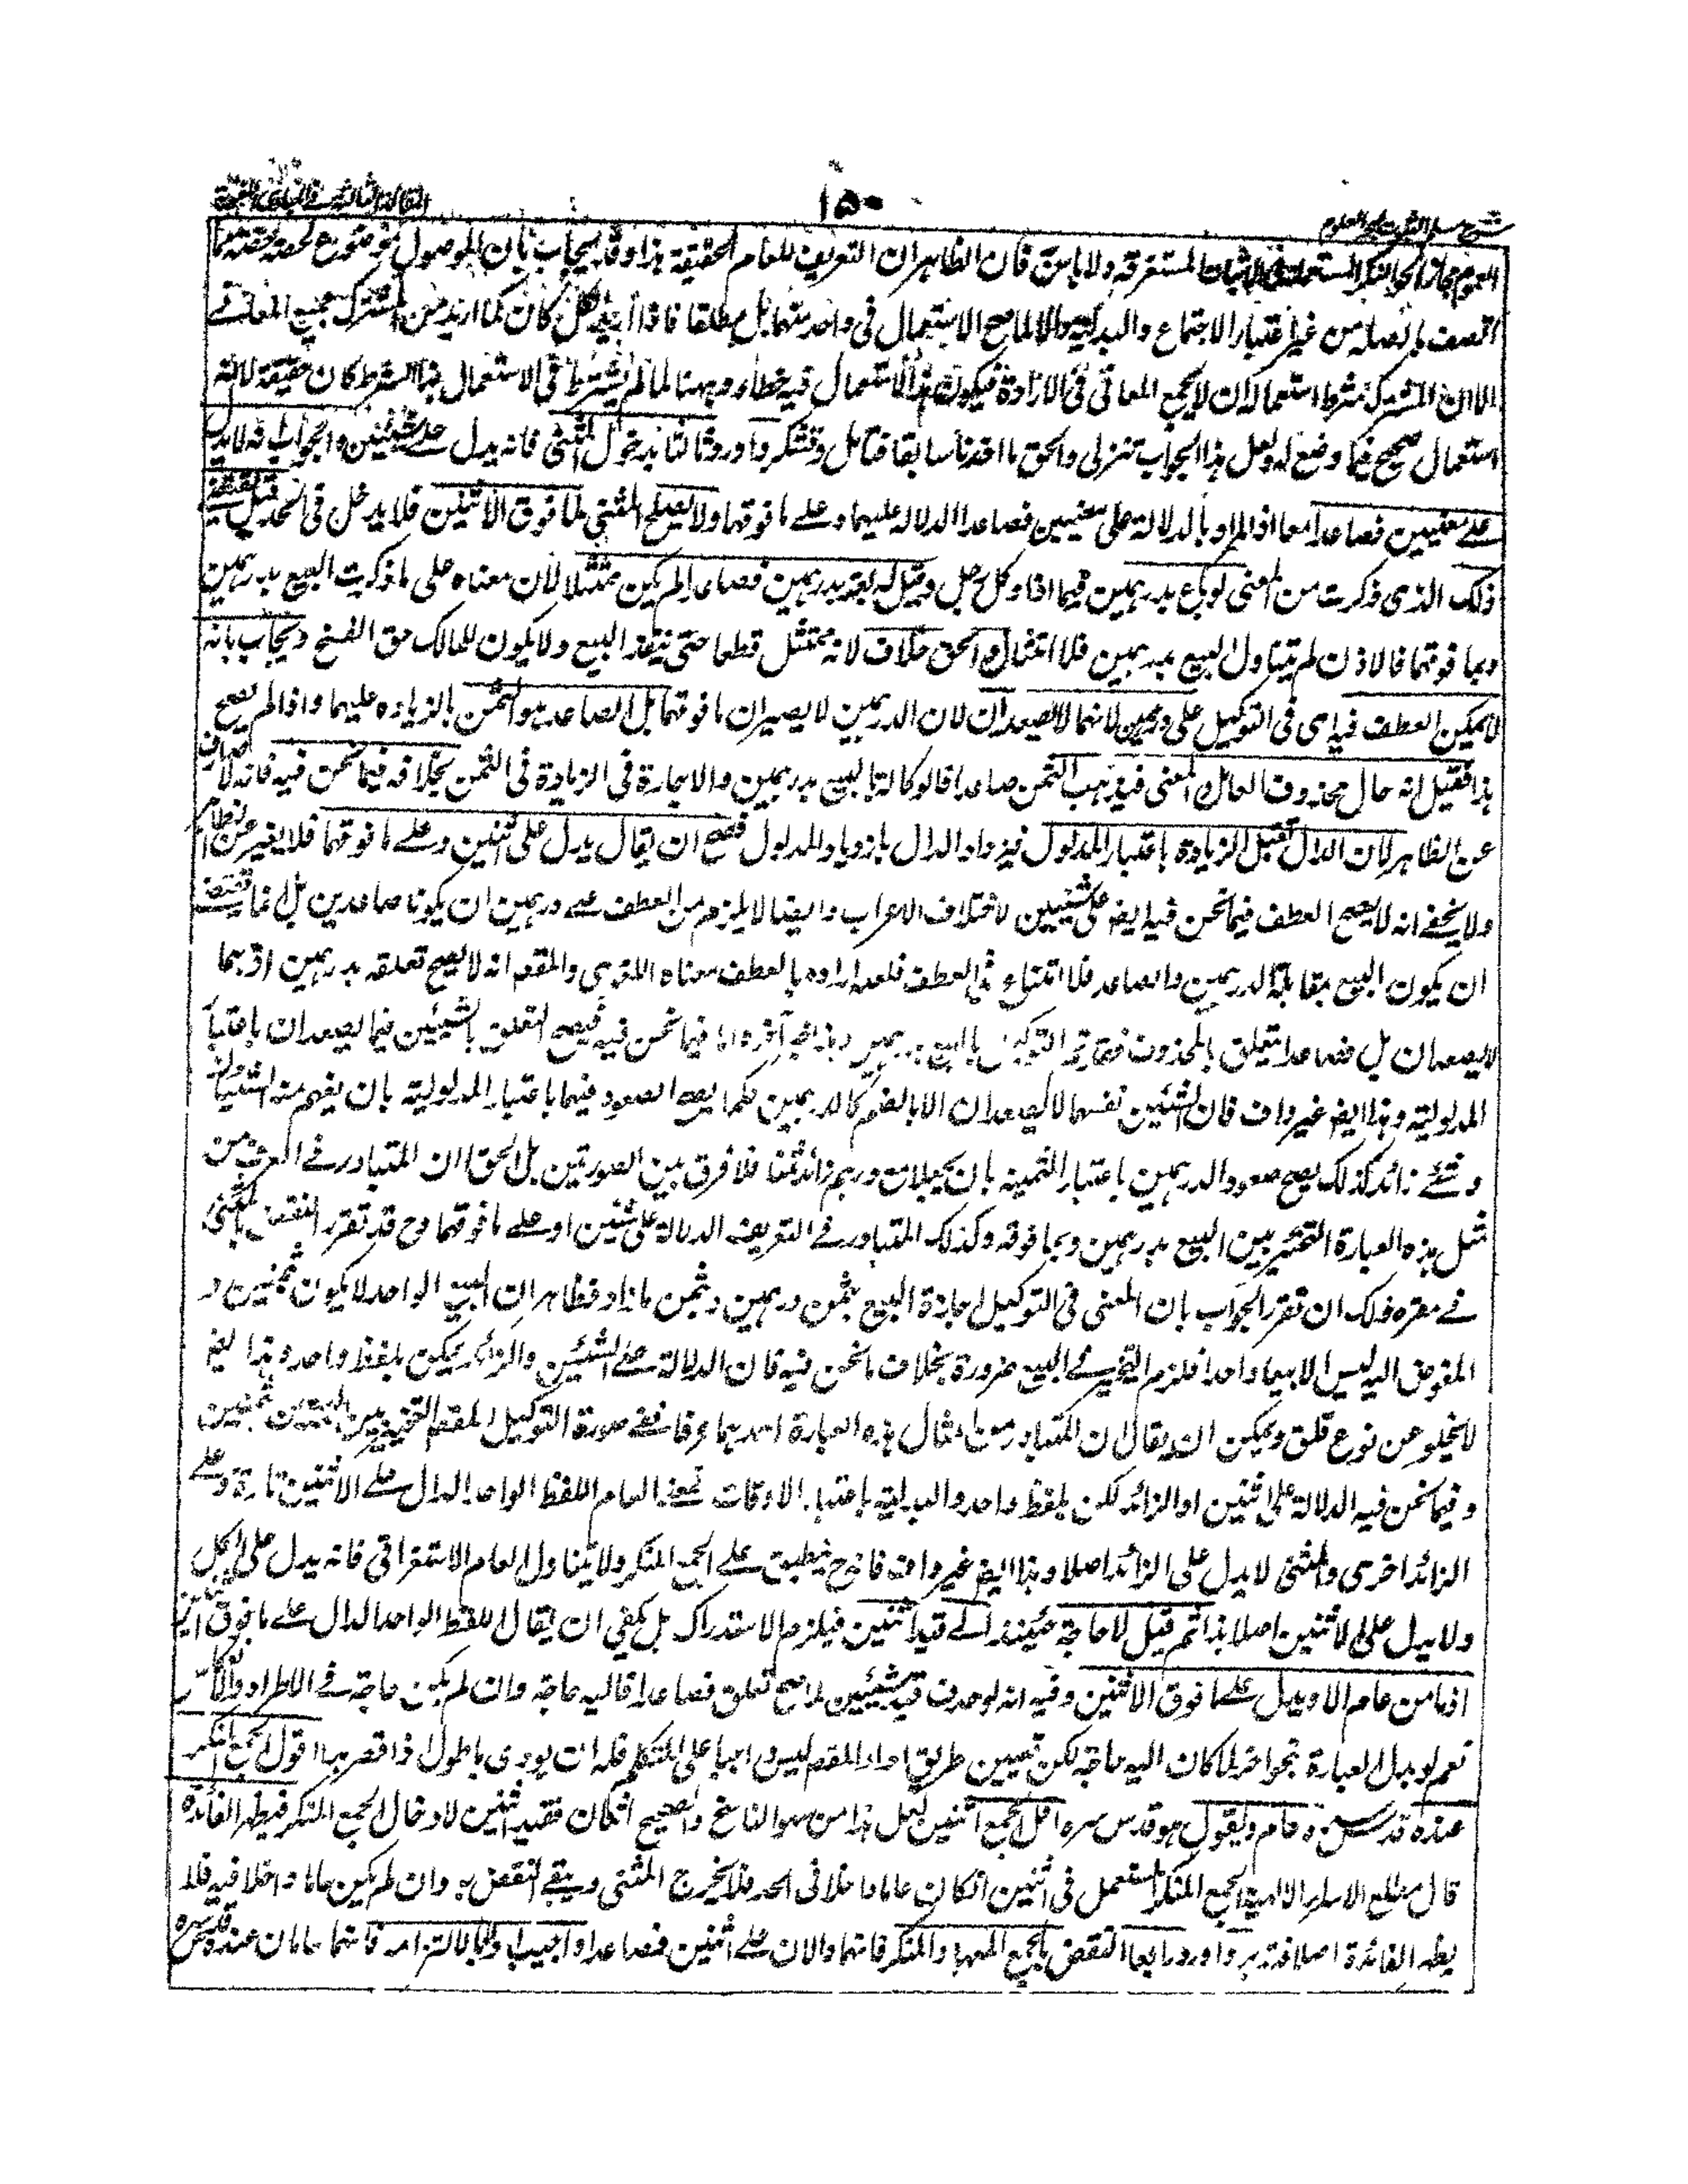 شرح مسلم الثبوت لبحر العلوم
١٥٠
المقالة الثالثة في المبادي اللغوية
العموم مجازا نحو النكرة المستعملة في الاثبات المستغرقة ولا باس فان الظاهر ان التعريف للعام الحقيقة هذا وقد يجاب بان الموصول موضوع لحصة حصة مما
اتصف بالصلة من غير اعتبار الاجتماع والبدلية والا لما صح الاستعمال في واحد منهما بل مطلقا فاذا اريد كل كان كما اريد من المشترك جميع المعاني
الا ان المشترك شرط استعماله ان لا يجمع المعاني في الارادة فيكون هذا الاستعمال فيه خطاء وههنا لما لم يشترط في الاستعمال هذا الشرط كان حقيقة لانه
استعمال صحيح فيما وضع له ولعل هذا الجواب تنزلي والحق ما افدنا سابقا فتامل وتشكر واورد ثالثا بدخول المثنى فانه يدل على شيئين والجواب انه لا يدل
على معنيين فصاعدا معا اذ المراد بالدلالة على معنيين فصاعدا الدلالة عليهما وعلى ما فوقهما ولا يصلح المثنى لما فوق الاثنين فلا يدخل في الحد قيل مقتضى
ذلك الذي ذكرت من المعنى لو باع بدرهمين فيما اذا وكل رجل وقيل له بعه بدرهمين فصاعدا لم يكن ممتثلا لان معناه على ما ذكرت البيع بدرهمين
وبما فوقهما فالاذن لم يتناول البيع بدرهمين فلا امتثال والحق خلاف لانه ممتثل قطعا حتى ينفذ البيع ولا يكون للمالك حق الفسخ ويجاب بانه
لا يمكن العطف فيه اي في التوكيل على درهمين لانهما لا يصعدان لان الدرهمين لا يصيران ما فوقهما بل الصاعد هو الثمن بالزيادة عليهما واذا لم يصح
هذا فقيل انه حال محذوف العامل المعنى فيذهب الثمن صاعدا فالوكالة بالبيع بدرهمين والاجازة في الزيادة في الثمن بخلافه فيما نحن فيه فانه لا صارف
عن الظاهر لان الدال تقبل الزيادة باعتبار المدلول فيزداد الدال بازدياد المدلول فصح ان يقال يدل على اثنين وعلى ما فوقهما فلا يغير عن الظاهر
ولا يخفى انه لا يصح العطف فيما نحن فيه ايضا على شيئين لاختلاف الاعراب وايضا لا يلزم من العطف على درهمين ان يكونا صاعدين بل انما يقتضي
ان يكون البيع مقابلة الدرهمين والصاعد فلا امتناع في العطف فلعله اراده بالعطف معناه اللغوي والمقصود انه لا يصح تعلقه بدرهمين اذ هما
لا يصعدان بل فصاعدا يتعلق بالمحذوف فقد تم التوكيل بالبيع بدرهمين وهذا الخ آخره اما فيما نحن فيه فيصح التعلق بالشيئين فيما يصعدان باعتبار
المدلولية وهذا ايضا غير واف فان الشيئين نفسهما لا يصعدان الا بالضم كالدرهمين فكما يصح الصعود فيهما باعتبار المدلولية بان يفهم منه الشيئان
وشئ زائد كذلك يصح صعود الدرهمين باعتبار الثمنية بان يجعلا مع درهم زائد ثمنا فلا فرق بين الصورتين بل الحق ان المتبادر في العرف من
مثل هذه العبارة التخيير بين البيع بدرهمين وبما فوقه وكذلك المتبادر في التعريف الدلالة على شيئين او على ما فوقهما وح قد تقرر النقض بالمثنى
في مقره ولك ان تقرر الجواب بان المعنى في التوكيل اجازة البيع بثمن درهمين وثمن ما زاد فظاهر ان البيع الواحد لا يكون بثمنين و
المفوض اليه ليس الا بيعا واحدا فلزم التخيير في البيع ضرورة بخلاف ما نحن فيه فان الدلالة على الشيئين والزائد يمكن بلفظ واحد وهذا ايضا
لا يخلو عن نوع قلق ويمكن ان يقال ان المتبادر من امثال هذه العبارة احدهما عرفا ففي صورة التوكيل المقصود التخيير بين البيعين بثمنين
وفيما نحن فيه الدلالة على اثنين او الزائد لكن بلفظ واحد والبدلية باعتبار الاوقات فمعنى العام اللفظ الواحد الدال على الاثنين تارة وعلى
الزائد اخرى والمثنى لا يدل على الزائد اصلا وهذا ايضا غير واف فانه ح ينطبق على الجمع المنكر ولا يتناول العام الاستغراقي فانه يدل على الكل
ولا يدل على الاثنين اصلا هذا ثم قيل لا حاجة حينئذ الى قيد اثنين فيلزم الاستدراك بل يكفي ان يقال اللفظ الواحد الدال على ما فوق اثنين
اذ ما من عام الا ويدل على ما فوق الاثنين وفيه انه لو حذف قيد شيئين لما صح تعلق فصاعدا فاليه حاجة وان لم يكن حاجة في الاطراد والانعكاس
نعم لو بدل العبارة بنحو آخر لما كان اليه حاجة لكن تعيين طريق اداء المقصود ليس واجبا على المتكلم فله ان يودي باطول اذا قصر بها اقول الجمع المنكر
عنده قدس سره عام ويقول هو قدس سره اقل الجمع اثنين لعل هذا من سهو الناسخ والصحيح اثنان فقيد اثنين لادخال الجمع المنكر فيظهر الفائدة
قال مطلع الاسرار الالهية الجمع المنكر المستعمل في اثنين ان كان عاما داخلا في الحد فلا يخرج المثنى ويبقى النقض به وان لم يكن عاما داخلا فيه فلا
يظهر الفائدة اصلا فتدبر واورد رابعا النقض بالجمع المعهود والمنكر فانهما دالان على اثنين فصاعدا واجيب اولا بالتزامه فانهما عامان عنده قدس سره